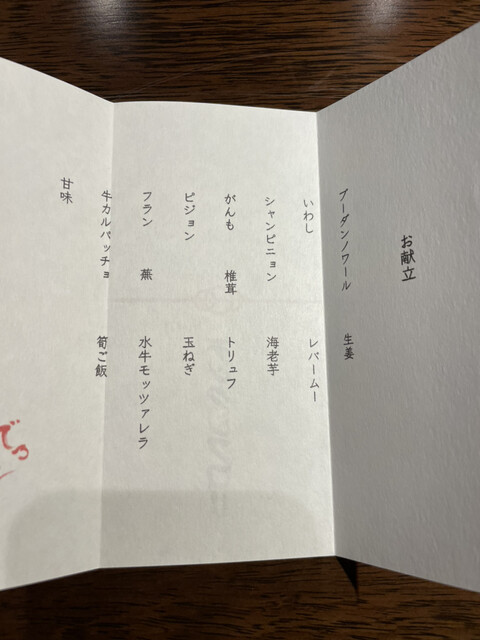 お献立
ブーダンノワール 生姜
いわし レバームー
シャンピニョン 海老芋
がんも 椎茸 トリュフ
ピジョン 玉ねぎ
フラン 蕪 水牛モッツァレラ
牛カルパッチョ 筍ご飯
甘味
でつ